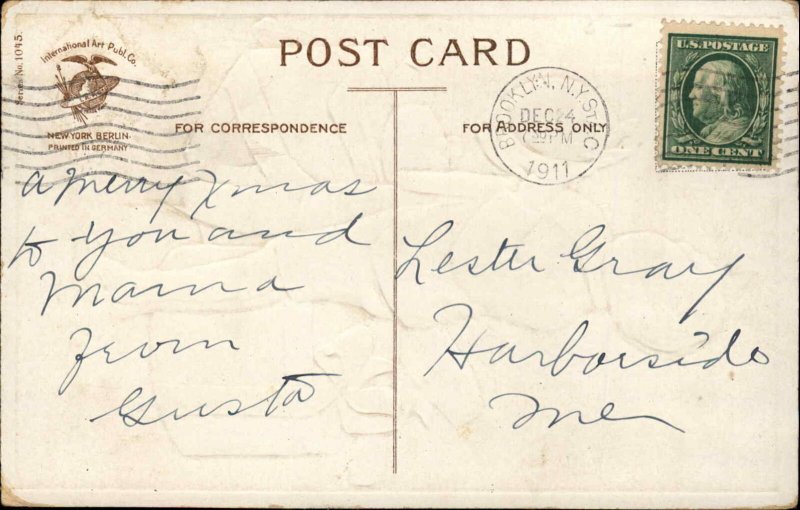 Series No. 1045.
International Art Publ. Co.
NEW YORK BERLIN
PRINTED IN GERMANY
POST CARD
FOR CORRESPONDENCE
FOR ADDRESS ONLY
BROOKLYN, N.Y. STA. C
DEC 24
PM
1911
U.S. POSTAGE
ONE CENT
A Merry Xmas
to you and
Mama
from
Gusta
Lester Gray
Harborside
Me